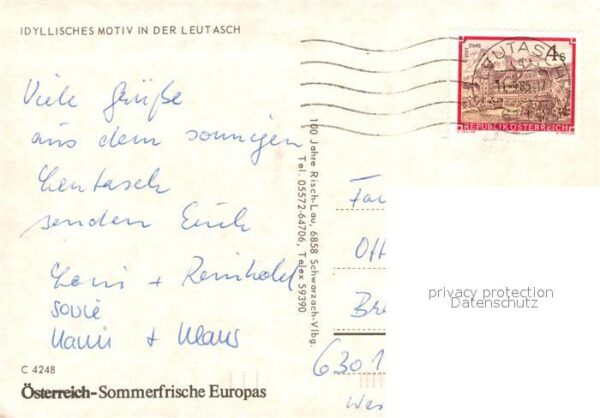 IDYLLISCHES MOTIV IN DER LEUTASCH
Viele Grüße
aus dem sonnigen
Leutasch
senden Euch
+ Reinhold
sowie
Hanni + Klaus
C 4248
Österreich-Sommerfrische Europas
100 Jahre Risch-Lau, 6858 Schwarzach-Vlbg.
Tel. 05572-64706, Telex 59390
STIFT STAMS
4s
REPUBLIK ÖSTERREICH
LEUTASCH
Fa
Ott
Bre
6301
Wes
privacy protection
Datenschutz